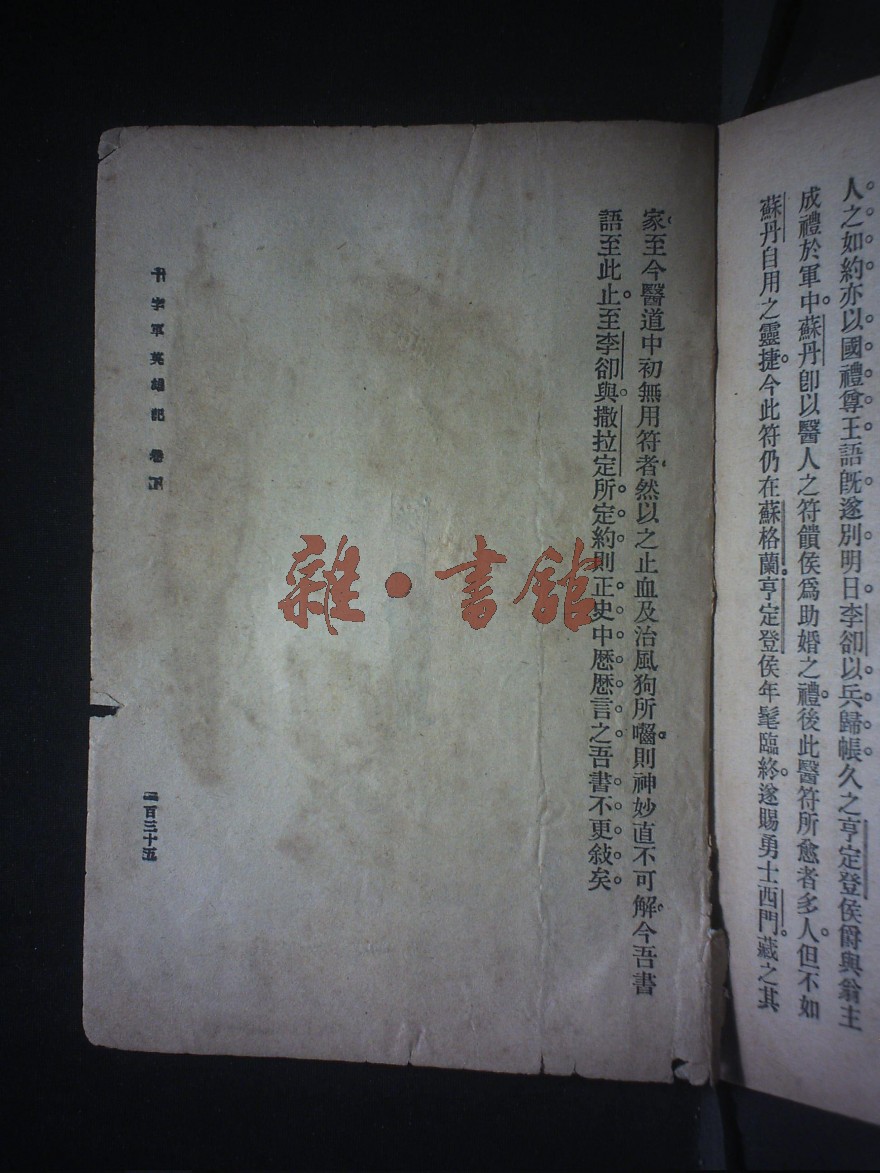 人之如約亦以國禮尊王語既遂別明日李卻以兵歸帳久之亨定登侯爵與翁主
成禮於軍中蘇丹卽以醫人之符饋侯爲助婚之禮後此醫符所愈者多人但不如
蘇丹自用之靈捷今此符仍在蘇格蘭亨定登侯年髦臨終遂賜勇士西門藏之其
家至今醫道中初無用符者然以之止血及治風狗所囓則神妙直不可解今吾書
語至此止至李卻與撒拉定所定約則正史中歷歷言之吾書不更敍矣
十字軍英雄記 卷下
百三十五
雜·書館